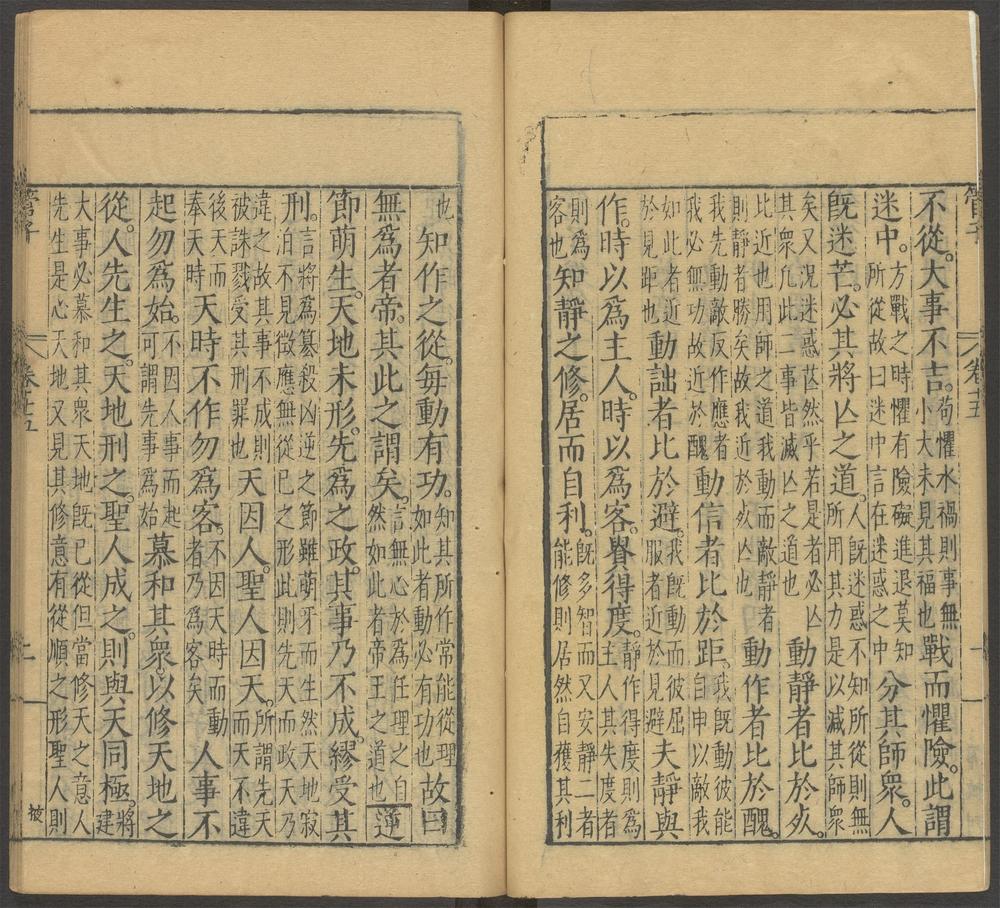 管子 卷十五 一
不從。大事不吉。苟懼水禍則事無
小大未見其福也戰而懼險。此謂
迷中。方戰之時懼有險礙進退莫知
所從故曰迷中言在迷惑之中分其師衆。人
旣迷芒。必其將亾之道。人旣迷惑不知所從則無
所用其力是以減其師衆
矣又況迷惑芒然乎若是者必亾
其衆凢此二事皆滅亾之道也動靜者比於𣦸。
比近也用師之道我動而敵靜者
則靜者勝矣故我近於𣦸亾也動作者比於醜。
我先動敵反作應者
我必無功故近於醜動信者比於距。我旣動彼能
自申以敵我
如此者近
於見距也動詘者比於避。我旣動而彼屈
服者近於見避夫靜與
作。時以爲主人。時以爲客。貴得度。靜作得度則爲
主人其失度者
則爲
客也知靜之修。居而自利。旣多智而又安靜二者
能修則居然自獲其利
也知作之從。每動有功。知其所作常能從理
如此者動必有功也故曰
無爲者帝。其此之謂矣。言無心於爲任理之自
然如此者帝王之道也逆
節萌生。天地未形。先爲之政。其事乃不成。繆受其
刑。言將爲簒殺凶逆之節雖萌牙而生然天地寂
泊不見徵應無從已之形此則先天而政天乃
違之故其事不成則
被誅戮受其刑罪也天因人。聖人因天。所謂先天
而天不違
後天而
奉天時天時不作勿爲客。不因天時而動
者乃爲客矣人事不
起勿爲始。不因人事而起
可謂先事爲始慕和其衆。以修天地之
從。人先生之。天地刑之。聖人成之。則與天同極。將
建
大事必慕和其衆天地旣已從但當修天之意人
先生是心天地又見其修意有從順之形聖人則
管子 卷十五 二
被